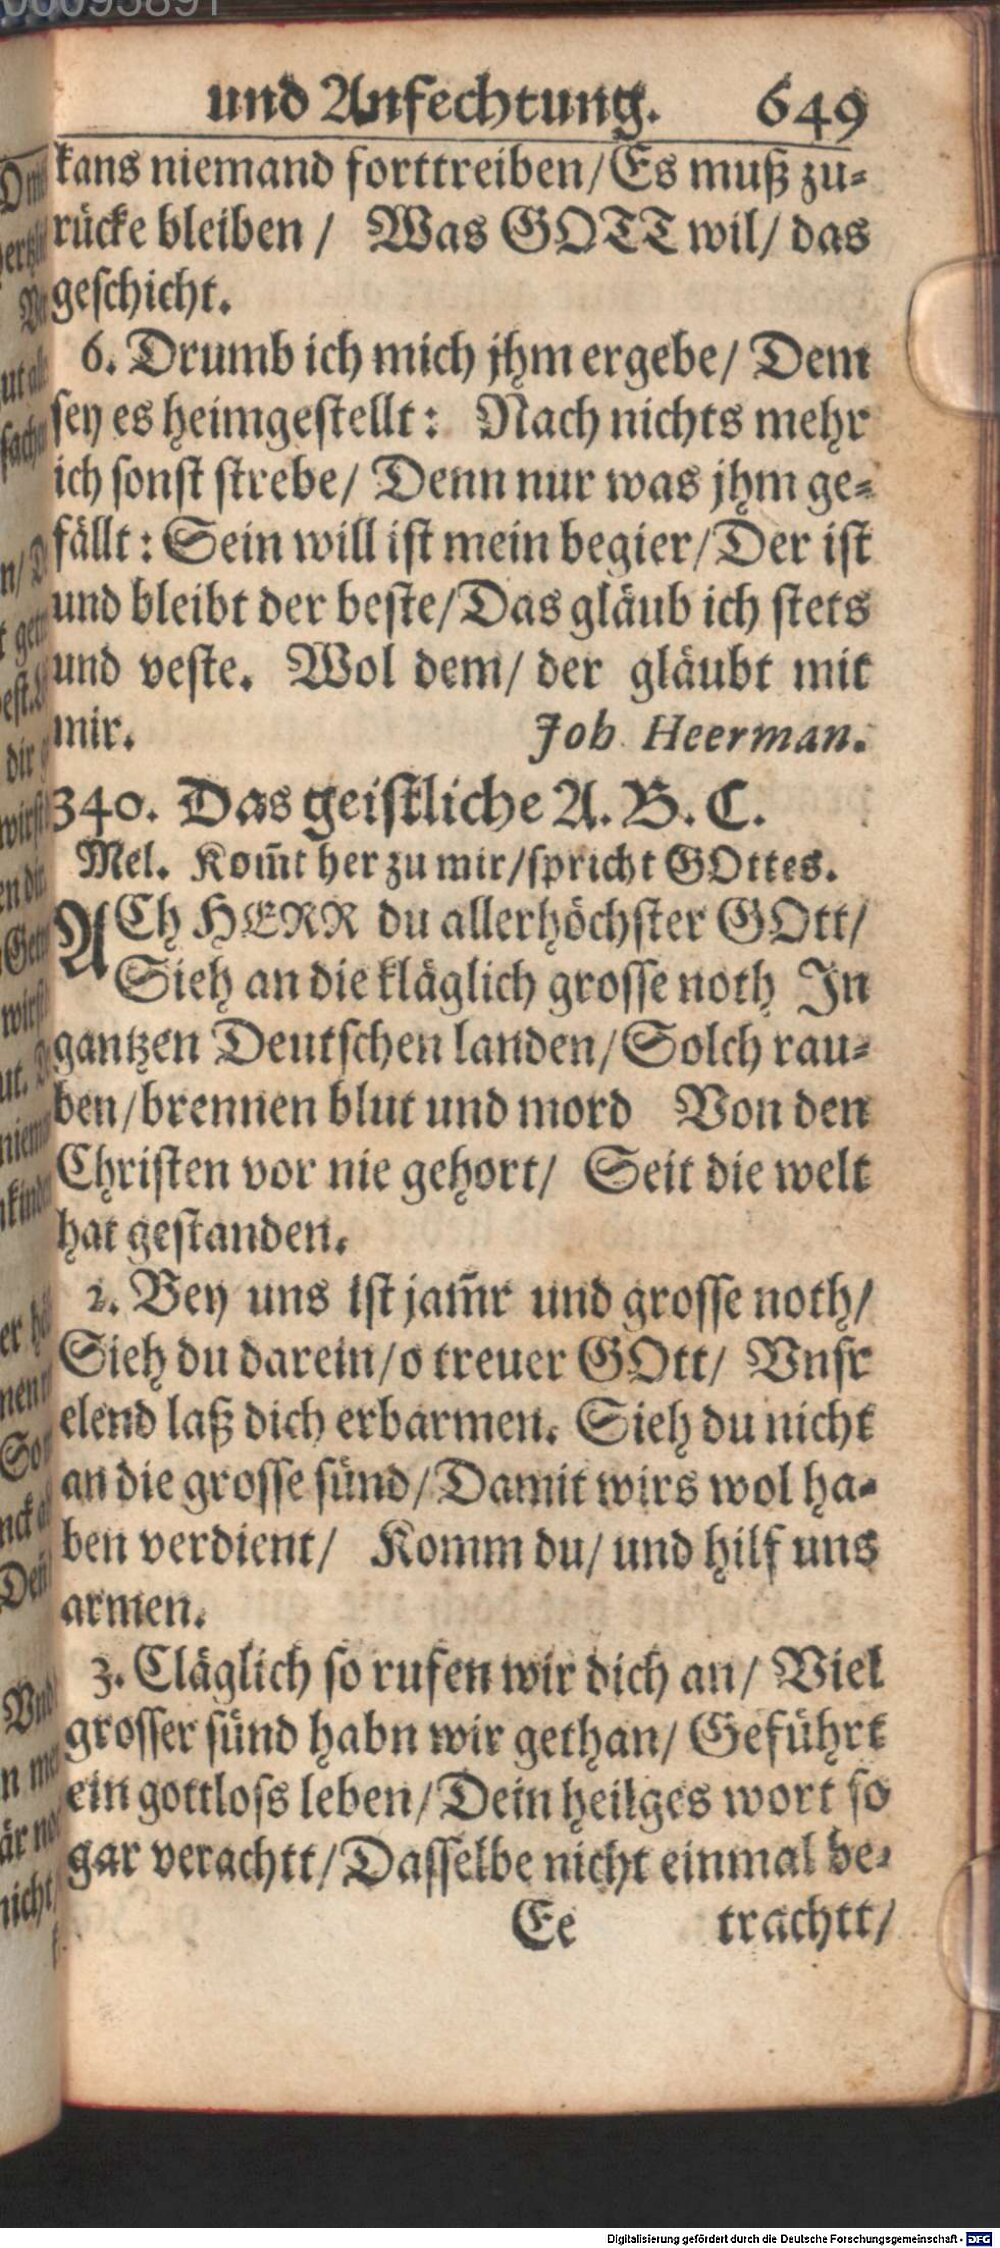 und Anfechtung. 649
kans niemand forttreiben/ Es muß zu-
rücke bleiben / Was GOTT wil/ das
geschicht.
6. Drumb ich mich jhm ergebe/ Dem
sey es heimgestellt: Nach nichts mehr
ich sonst strebe/ Denn nur was jhm ge-
fällt: Sein will ist mein begier/ Der ist
und bleibt der beste/ Das gläub ich stets
und veste. Wol dem/ der gläubt mit
mir. Joh. Heerman.
340. Das geistliche A. B. C.
Mel. Kom̃t her zu mir/ spricht GOttes.
ACh HERR du allerhöchster GOtt/
Sieh an die kläglich grosse noth In
gantzen Deutschen landen/ Solch rau-
ben/ brennen blut und mord Von den
Christen vor nie gehort/ Seit die welt
hat gestanden.
2. Bey uns ist jam̃r und grosse noth/
Sieh du darein/ o treuer GOtt/ Vnsr
elend laß dich erbarmen. Sieh du nicht
an die grosse sünd/ Damit wirs wol ha-
ben verdient/ Komm du/ und hilf uns
armen.
3. Cläglich so rufen wir dich an/ Viel
grosser sünd habn wir gethan/ Geführt
ein gottloss leben/ Dein heilges wort so
gar verachtt/ Dasselbe nicht einmal be-
Ee trachtt/
Digitalisierung gefördert durch die Deutsche Forschungsgemeinschaft - DFG